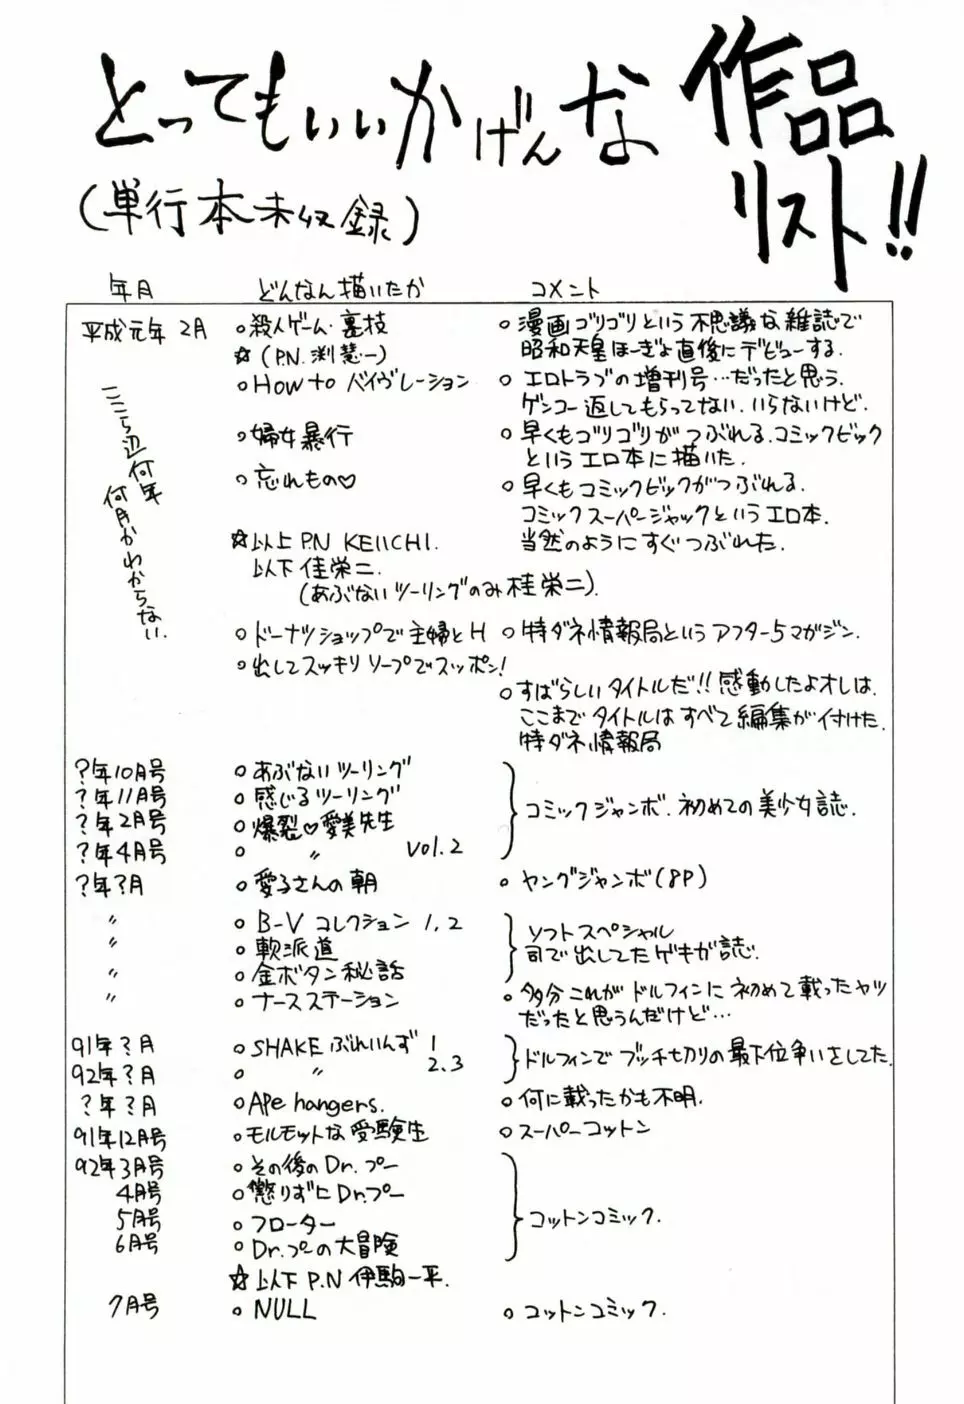 とってもいいかげんな作品リスト!!
(単行本未収録)
年月 どんなん描いたか コメント
平成元年 2月 ○殺人ゲーム・裏技 ○漫画ゴリゴリという不思議な雑誌で
☆(P.N. 渕慧一) 昭和天皇ほーぎょ直後にデビューする.
ここら辺何年何月かわからない.
○HOW to バイヴレーション ○エロトラブの増刊号…だったと思う.
ゲンコー返してもらってない.いらないけど.
○婦女暴行 ○早くもゴリゴリがつぶれる.コミックビック
というエロ本に描いた.
○忘れもの♡ ○早くもコミックビックがつぶれる.
コミックスーパージャックというエロ本.
☆以上 P.N KEIICHI. 当然のようにすぐつぶれた.
以下 佳栄二.
(あぶないツーリングのみ桂栄二).
○ドーナツショップで主婦とH ○特ダネ情報局というアフター5マガジン.
○出してスッキリソープでスッポン!
○すばらしいタイトルだ!!感動したよオレは.
ここまでタイトルはすべて編集が付けた.
特ダネ情報局
?年10月号 ○あぶないツーリング
?年11月号 ○感じるツーリング
コミックジャンボ.初めての美少女誌.
?年2月号 ○爆裂♡愛美先生
?年4月号 ○ 〃 vol.2
?年?月 ○愛子さんの朝 ○ヤングジャンボ(8P)
〃 ○B-Vコレクション 1,2 ソフトスペシャル
〃 ○軟派道 司で出してたゲキガ誌.
〃 ○金ボタン秘話
〃 ○ナースステーション ○多分これがドルフィンに初めて載ったヤツ
だったと思うんだけど…
91年?月 ○SHAKEぶれいんず 1 ドルフィンでブッチ切りの最下位争いをしてた.
92年?月 ○ 〃 2.3
?年?月 ○Ape hangers. ○何に載ったかも不明.
91年12月号 ○モルモットな受験生 ○スーパーコットン
92年3月号 ○その後のDr.プー
4月号 ○懲りずにDr.プー
5月号 ○フローター コットンコミック.
6月号 ○Dr.プーの大冒険
☆以下 P.N 伊駒一平.
7月号 ○NULL ○コットンコミック.